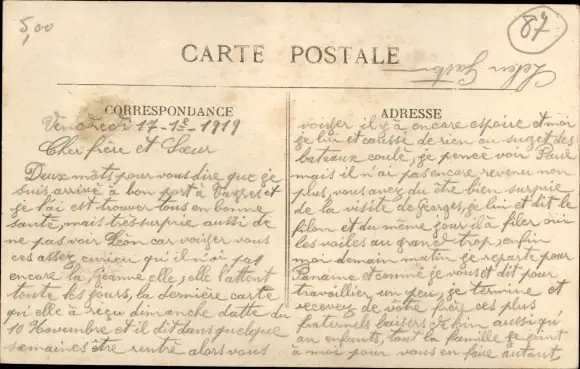 5,00
87
CARTE POSTALE
CORRESPONDANCE
Vendredi 17-1e-1919
Cher frère et Sœur
Deux mots pour vous dire que je
suis arrivé à bon port à et
je l'ai est trouver tous en bonne
santé, mais très surprie aussi de
ne pas voir Léon car voiyer vous
ces assez curieu qu'il n'oi pas
encore la, Germe elle, elle l'attent
toute les jours, la dernière carte
qu'elle à reçu dimanche datte du
10 Novembre et il dit dans quelque
semaines être rentré alors vous
ADRESSE
voiyer il y à encore espoire et moi
je lui et caussé de rien au suget des
bateaux coulé, je pence voir Paul
mais il n'ai pas encare revenu non
plus, vous avez du être bien surprie
de la visite de Georges, je lui et dit le
filon et du même jour il à filer où
les voiles au grand trop, enfin
moi domain matin je reparte pour
Paname et comme je vous et dit pour
travaillier un peu, je termine et
recevez de vôtre frère ces plus
fraternels baisers, je bin aussi qu'
au enfants, tout la famille se joint
à moi pour vous en faire autant,